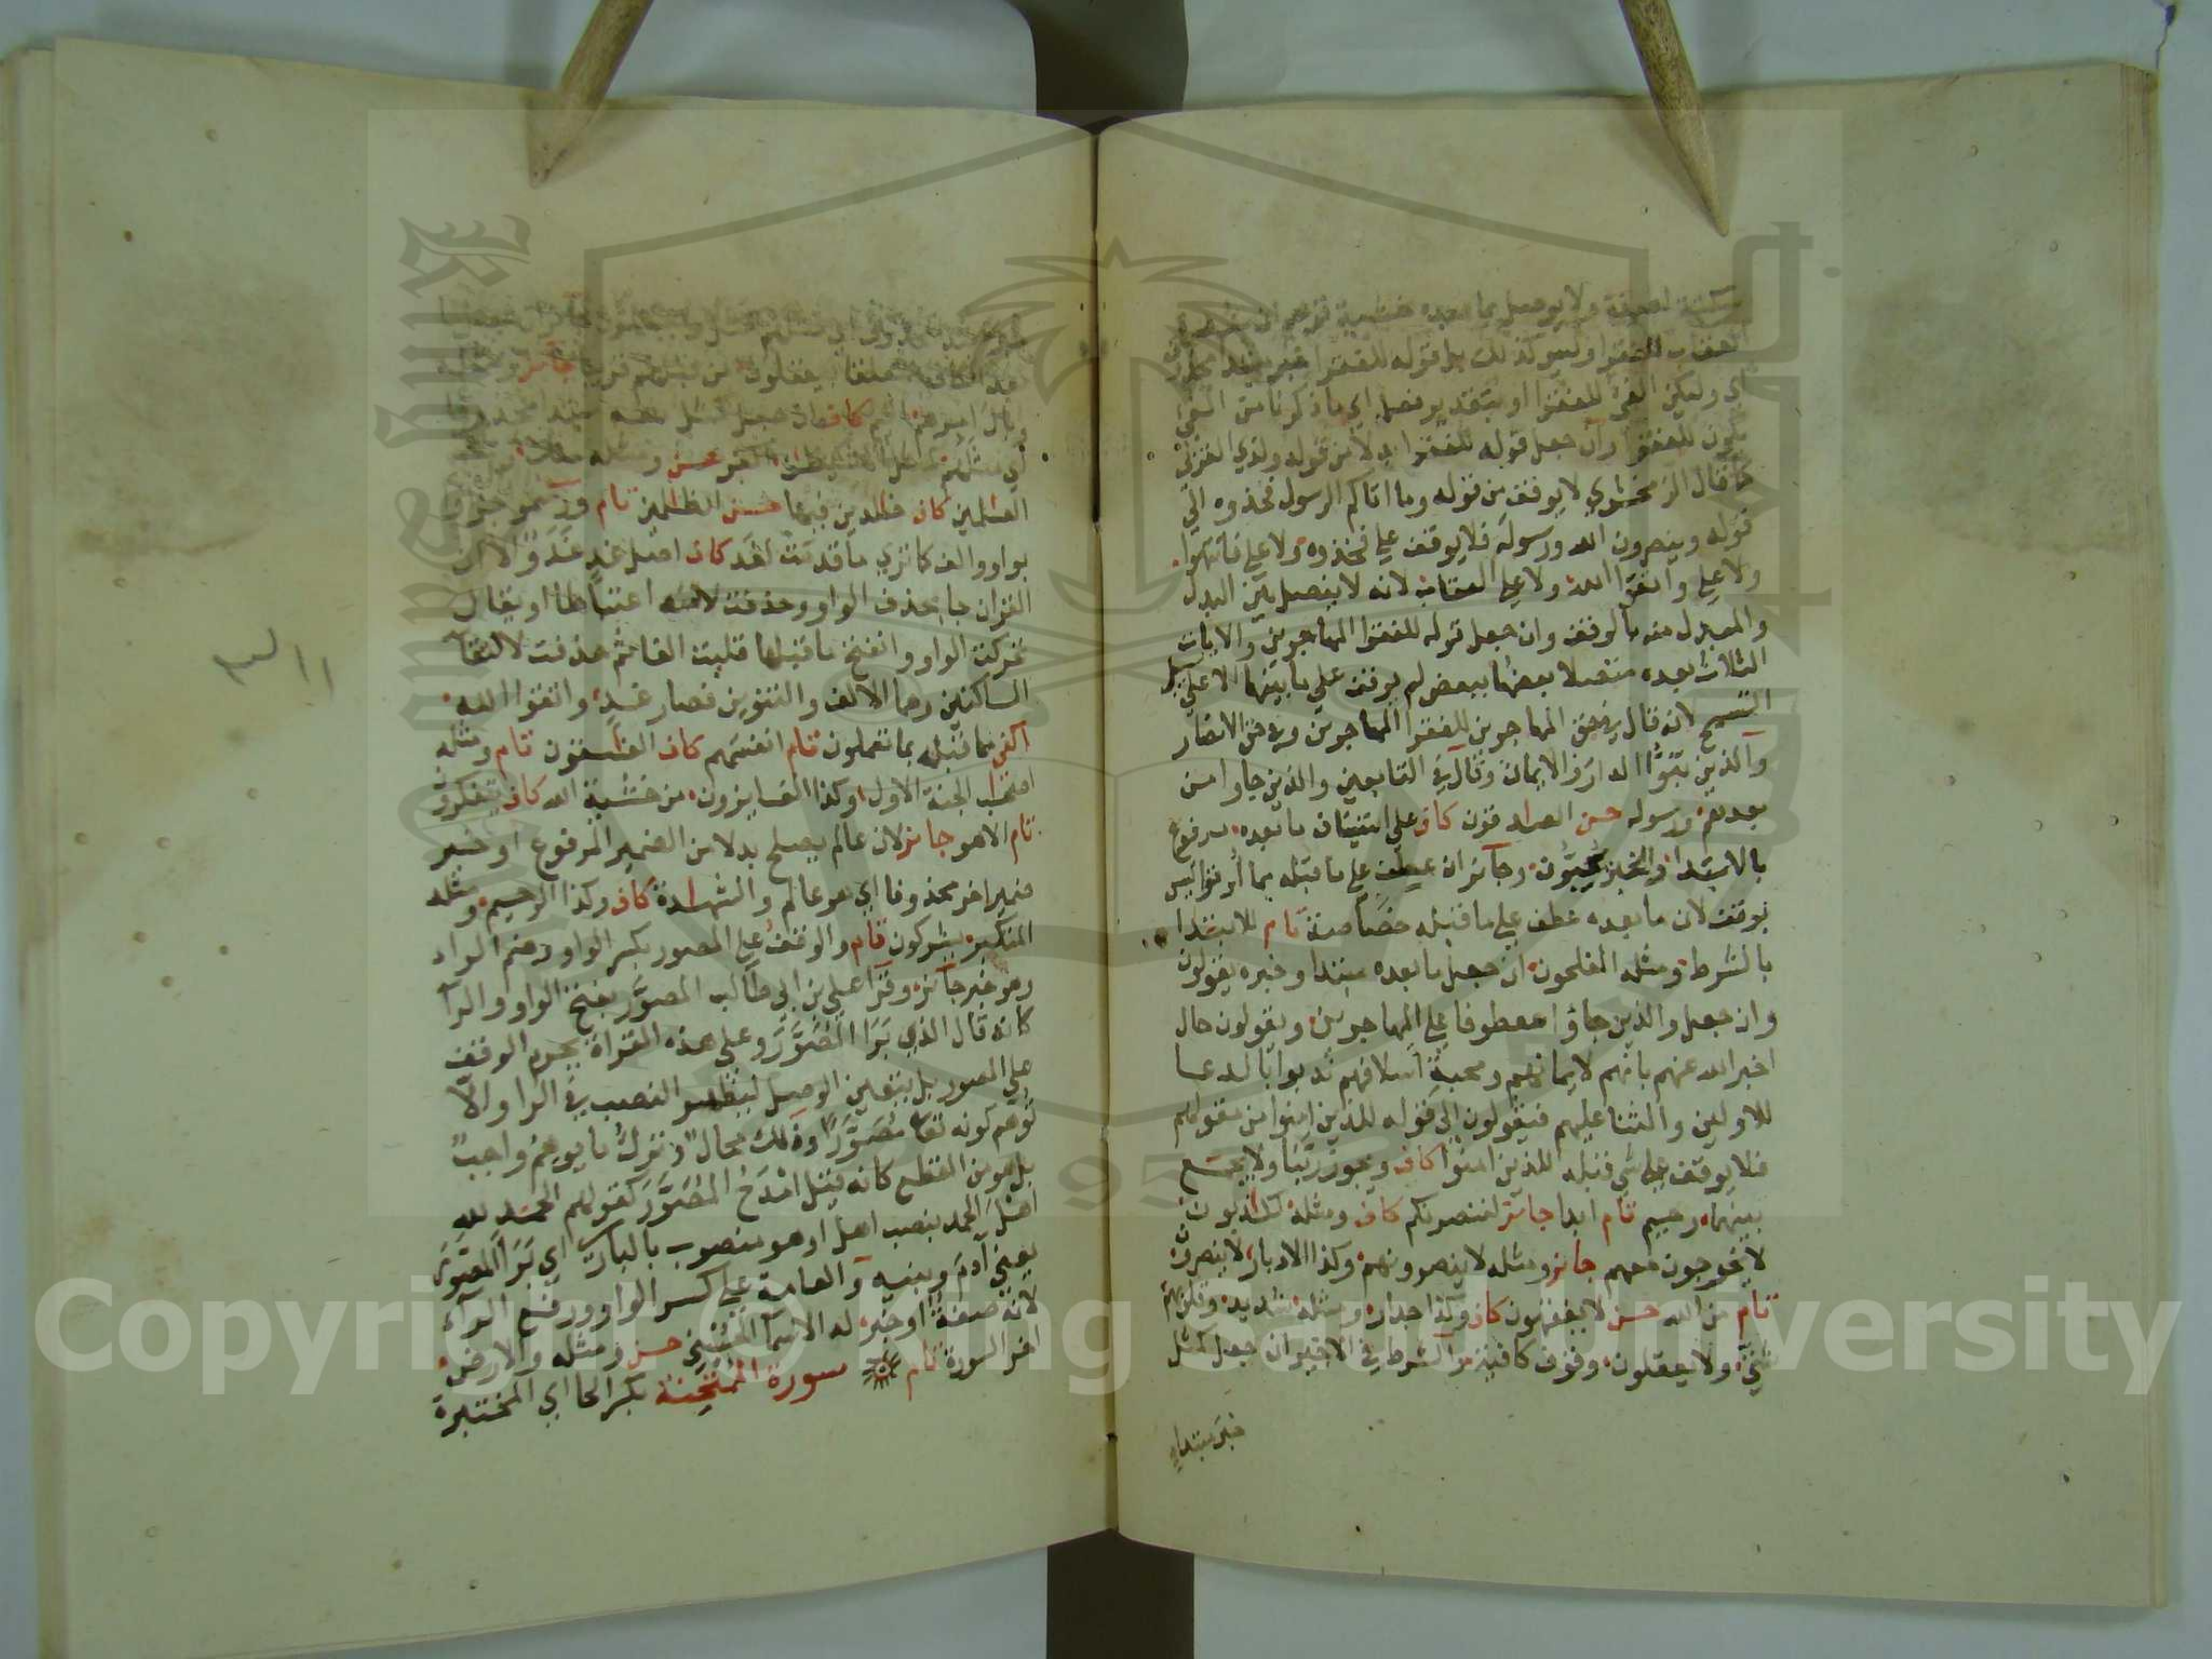 ولا يوصل بما بعده خشية توهم ان شدة
العقاب للفقرا وليس كذلك بل قوله للفقرا خبر مبتدا محذوف
اي ولكن الفي للفقرا او بتقدير فعل اي ما ذكرنا من الفي
يكون للفقرا وان جعل قوله للفقرا بدلا من قوله ولذي القربى
كما قال الزمخشري لا يوقف من قوله وما اتاكم الرسول فخذوه الي
قوله وينصرون الله ورسوله فلا يوقف علي فخذوه ولا علي فانتهوا
ولا علي واتقوا الله ولا علي العقاب لانه لا يفصل بين البدل
والمبدل منه بالوقف وان جعل قوله للفقرا المهاجرين والايات
الثلاث بعده متصلا بعضها ببعض لم يوقف علي ما بينها الا علي سبيل
التسمح لانه قال في حق المهاجرين للفقرا المهاجرين وفي حق الانصار
والذين تبوؤا الدار والايمان وقال في التابعين والذين جاوا من
بعدهم ورسوله حسن الصادقون كاف علي استيناف ما بعده مرفوع
بالابتدا والخبر يحبون وجائز ان عطف علي ما قبله مما أوتوا ليس
بوقف لان ما بعده عطف علي ما قبله خصاصة تام للابتدا
بالشرط ومثله المفلحون ان جعل ما بعده مبتدا وخبره يقولون
وان جعل والذين جاؤا معطوفا علي المهاجرين ويقولون حال
اخبر الله عنهم بانهم لايمانهم ومحبة اسلافهم ندبوا بالدعا
للاولين والثنا عليهم فيقولون الي قوله للذين امنوا من مقولهم
فلا يوقف علي شي قبله للذين امنوا كاف ويجوز ربنا ولا يجمع
بينهما رحيم تام ابدا جائز لننصرنكم كاف ومثله لكاذبون
لا يخرجون معهم جائز ومثله لا ينصرونهم وكذا الادبار لا ينصرون
تام من الله حسن لا يفقهون كاف وكذا جدار ومثله شديد وقلوبهم
شتي ولا يعقلون وقوف كافية والشرط في الاخير ان جعل كمثل
خبر مبتدا
كاف ان جعل كمثل
العلمين كاف خلدين فيها حسن الظلمين تام ورسموا جزؤا
بواو والف كما تري ما قدمت لغد كاف اصل غد غدو الا ان
القران جا بحذف الواو وحذفت لامه اعتباطا او يقال
تحركت الواو وانفتح ما قبلها قلبت الفا ثم حذفت لالتقا
الساكنين وهما الالف والتنوين فصار غد واتقوا الله
اكفي مما قبله بما تعملون تام انفسهم كاف الفسقون تام ومثله
اصحب الجنة الاول وكذا الفايزون من خشية الله كاف يتفكرون
تام الا هو جائز لان عالم يصلح بدلا من الضمير المرفوع او خبر
ضمير اخر محذوفا اي هو عالم والشهادة كاف وكذا الرحيم ومثله
المتكبر يشركون تام والوقف علي المصور بكسر الواو وضم الراء
وهو خبر جائز وقرا علي بن ابي طالب المصوَّرَ بفتح الواو والرآ
كانه قال الذي بَرَا المُصَوَّرَ وعلي هذه القراة يحرم الوقف
علي المصور بل يتعين الوصل ليظهر النصب في الرا والا
توهم كونه تعا مُصَوَّرًا وذلك محال وترك ما يوهم واجب
بل هو من القطع كانه قيل امدح المُصَوَّرَ كقولهم الحمد لله
اهلَ الحمد بنصب اهل او هو منصوب بالبارئ اي بَرَا المصوَّرَ
يعني آدم وبنيه والعامة علي كسر الواو ورفع الرآء
لانه صفة او خبر له الاسمآ الحسني حسن ومثله والارض
اخر السورة تام سورة الممتحنة بكسر الحا اي المختبرة
Copyright © King Saud University